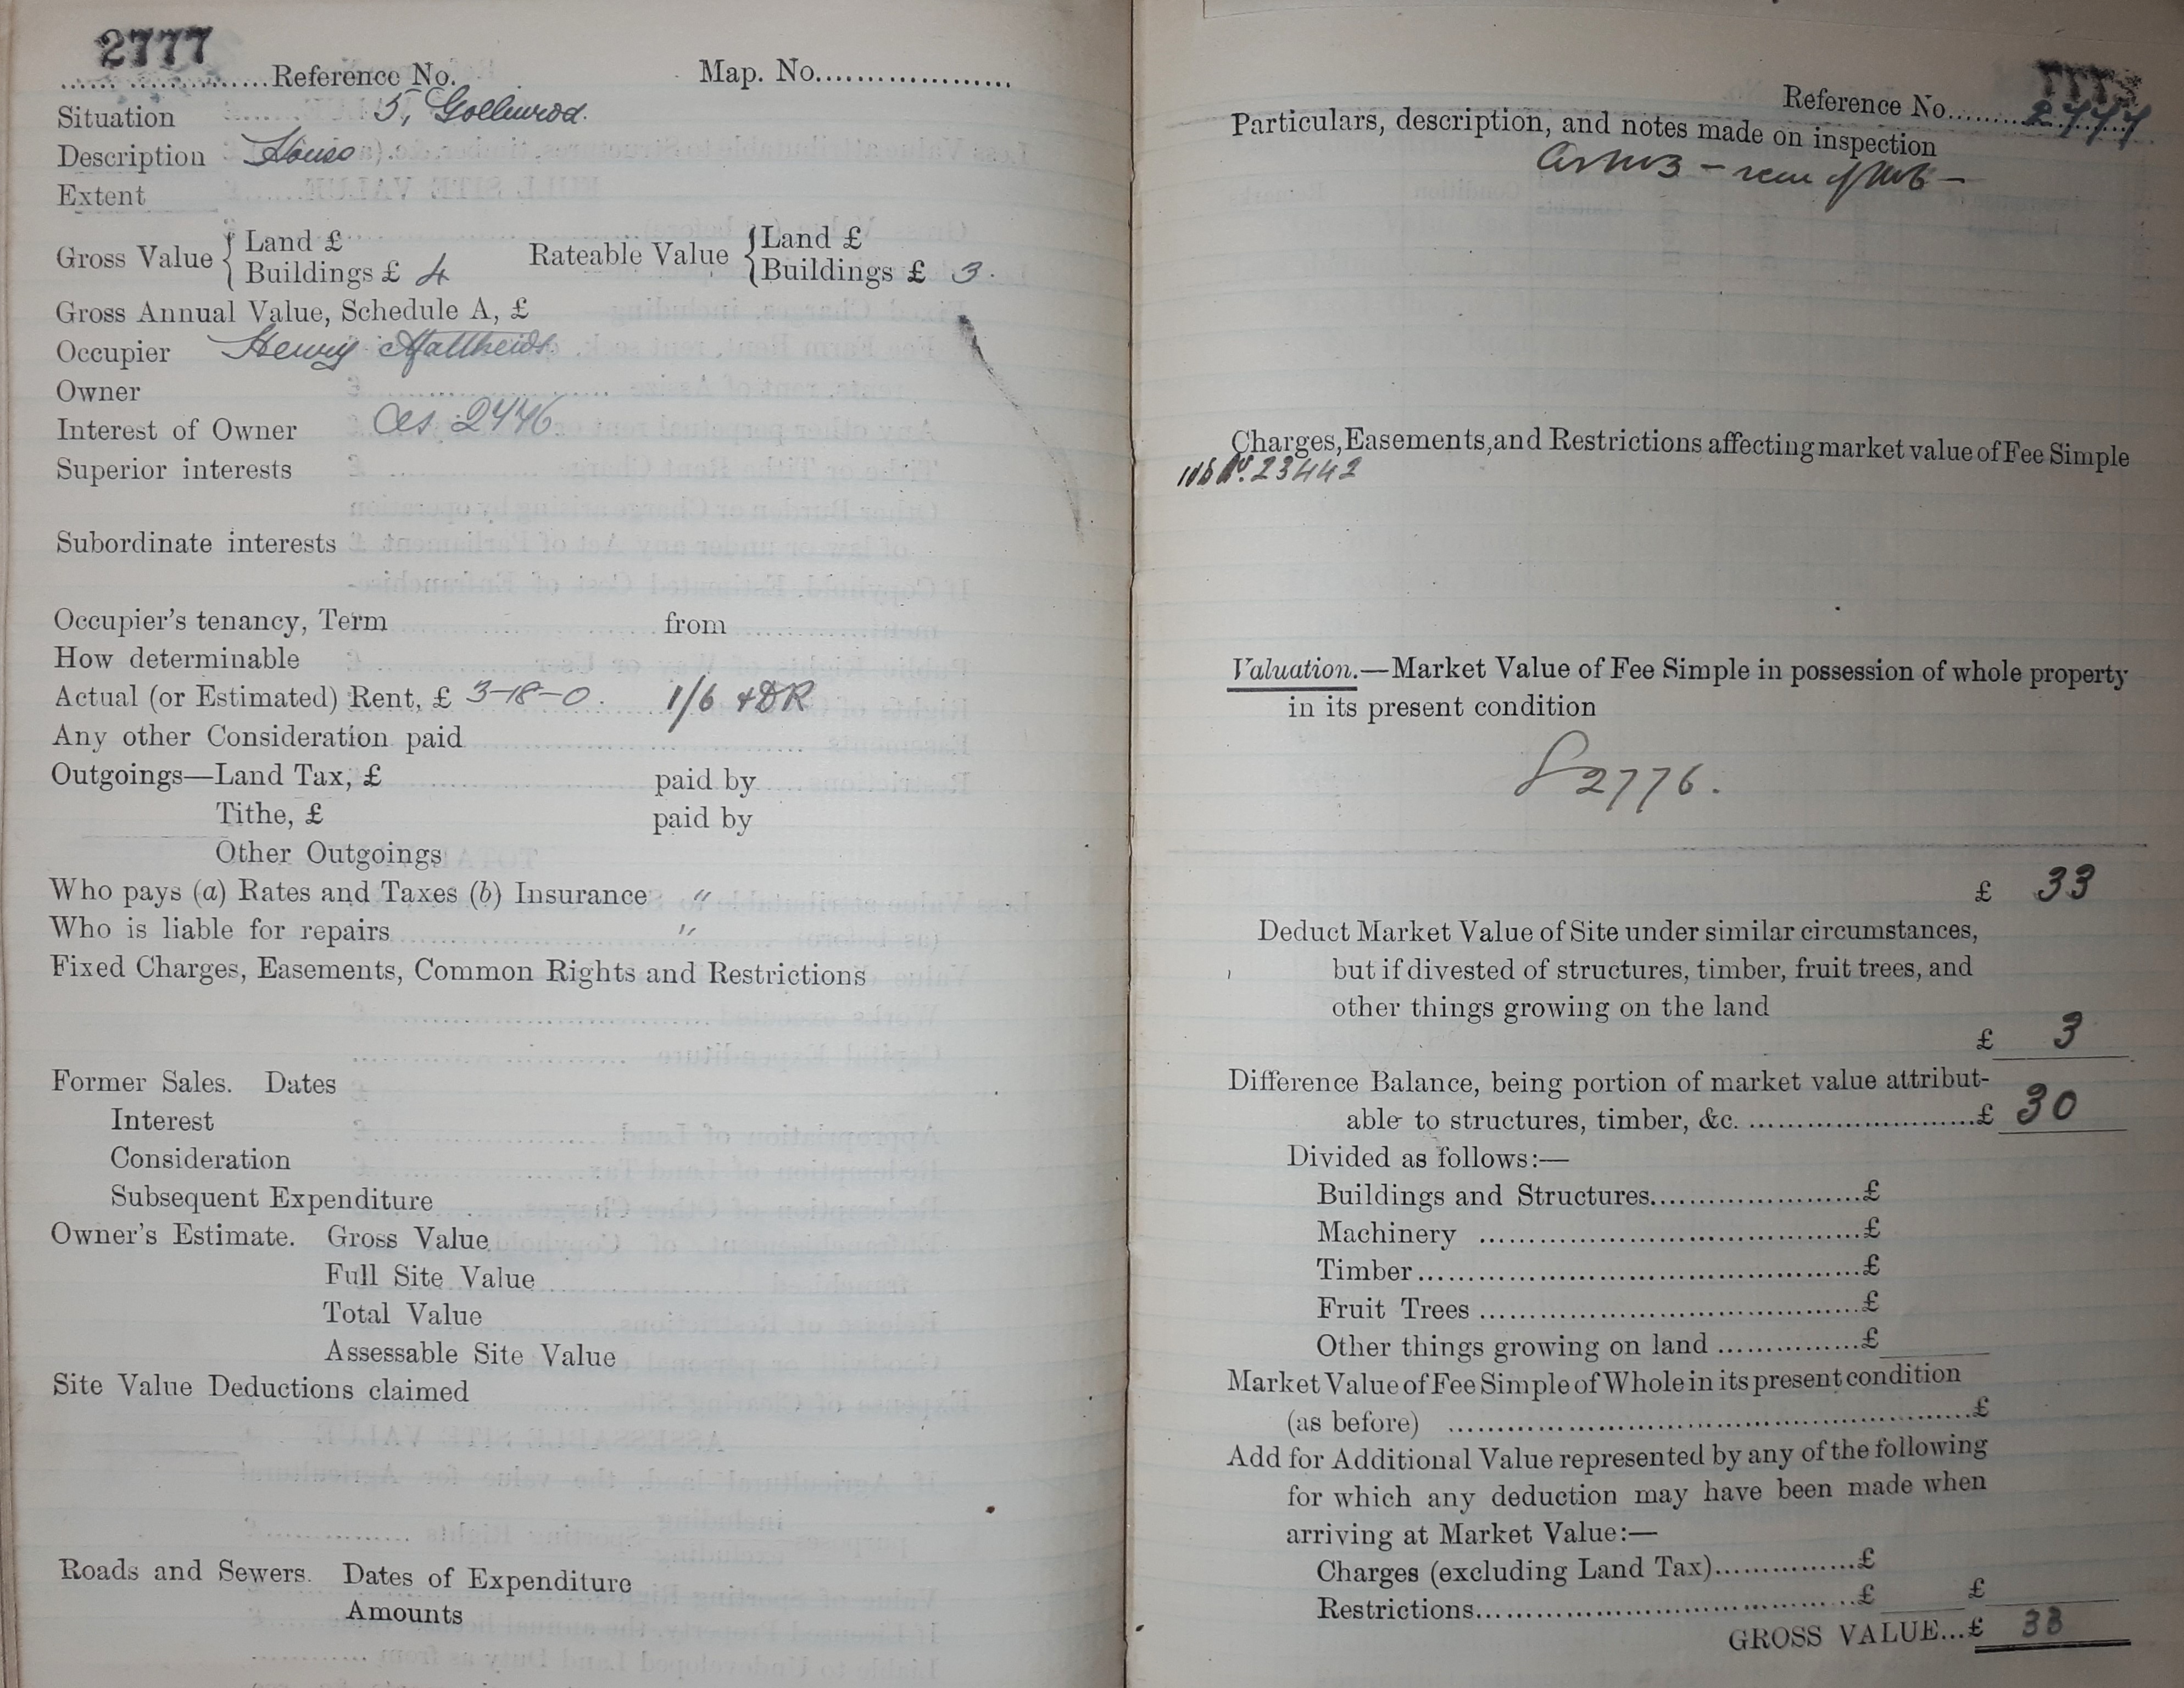 2777
Reference No. Map. No.
Situation 5, Gollinrod.
Description House
Extent
Gross Value { Land £ Rateable Value { Land £
Buildings £ 4 Buildings £ 3.
Gross Annual Value, Schedule A, £
Occupier Henry Matthews
Owner
Interest of Owner as 2776
Superior interests
Subordinate interests
Occupier's tenancy, Term from
How determinable
Actual (or Estimated) Rent, £ 3-18-0. 1/6 + DR
Any other Consideration paid
Outgoings—Land Tax, £ paid by
Tithe, £ paid by
Other Outgoings
Who pays (a) Rates and Taxes (b) Insurance "
Who is liable for repairs "
Fixed Charges, Easements, Common Rights and Restrictions
Former Sales. Dates
Interest
Consideration
Subsequent Expenditure
Owner's Estimate. Gross Value
Full Site Value
Total Value
Assessable Site Value
Site Value Deductions claimed
Roads and Sewers. Dates of Expenditure
Amounts
Reference No. 2777
Particulars, description, and notes made on inspection
Charges, Easements, and Restrictions affecting market value of Fee Simple
23442
Valuation.—Market Value of Fee Simple in possession of whole property
in its present condition
2776.
£ 33
Deduct Market Value of Site under similar circumstances,
but if divested of structures, timber, fruit trees, and
other things growing on the land
£ 3
Difference Balance, being portion of market value attribut-
able to structures, timber, &c. £ 30
Divided as follows:—
Buildings and Structures £
Machinery £
Timber £
Fruit Trees £
Other things growing on land £
Market Value of Fee Simple of Whole in its present condition
(as before) £
Add for Additional Value represented by any of the following
for which any deduction may have been made when
arriving at Market Value:—
Charges (excluding Land Tax) £
Restrictions £ £
GROSS VALUE...£ 33